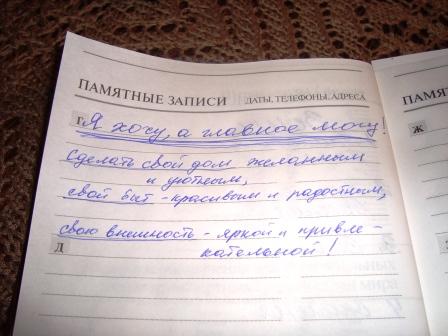 ПАМЯТНЫЕ ЗАПИСИ ДАТЫ, ТЕЛЕФОНЫ, АДРЕСА
Г Я хочу, а главное могу!
Сделать свой дом желанным
и уютным,
свой быт - красивым и радостным,
свою внешность - яркой и привле-
Д кательной!
ПАМЯТ
Ж